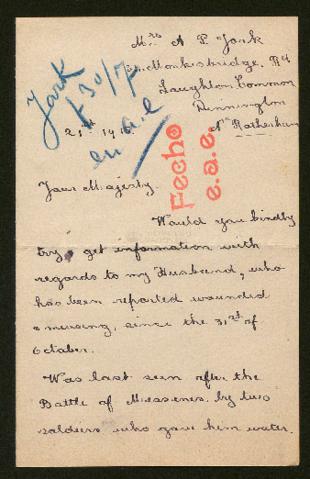 Mrs A P York
Monksbridge, Rd
Laughton Common
Dinnington
Nr Rotherham
York
£30/7
enael
21st 1918
Fecho
e.a.e.
Your Majesty.
Would you kindly
try & get information with
regards to my Husband, who
has been reported wounded
& missing, since the 31st of
October.
Was last seen after the
Battle of Messenes. by two
soldiers who gave him water.